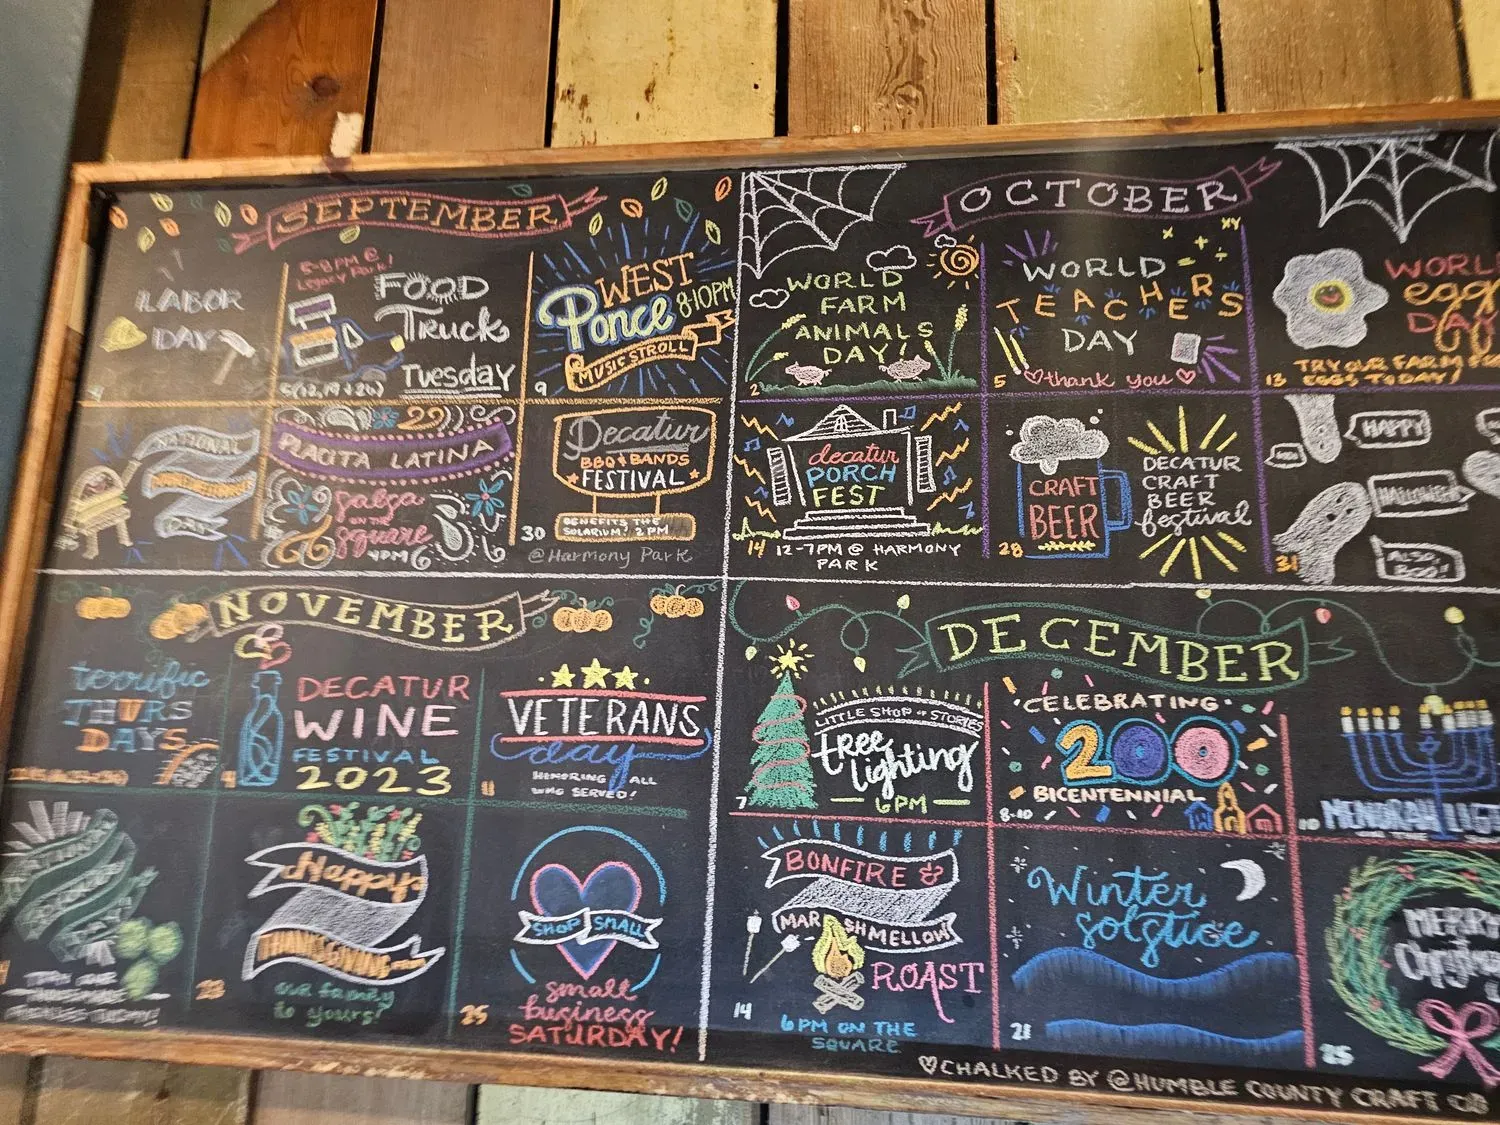 SEPTEMBER
LABOR
DAY
5-8PM @
Legacy Park!
FOOD
Truck
Tuesday
5(12,19+26)
WEST
Ponce
8-10PM
MUSIC STROLL
9
NATIONAL
DAY
22
PLACITA LATINA
Salsa
ON THE
Square
4PM
Decatur
BBQ & BANDS
FESTIVAL
BENEFITS THE
SOLARIUM! 2PM
30
@Harmony Park
OCTOBER
WORLD
FARM
ANIMALS
DAY!
2
WORLD
TEACHERS
DAY
5
thank you
WORL
egg
DAY
13
TRY OUR FARM FR
EGGS TODAY!
decatur
PORCH
FEST
14
12-7PM @ HARMONY
PARK
CRAFT
BEER
28
DECATUR
CRAFT
BEER
festival
HAPPY
HALLOWEEN
ALSO,
BOO!!
31
NOVEMBER
terrific
THURS
DAYS
DECATUR
WINE
FESTIVAL
2023
VETERANS
day
HONORING ALL
WHO SERVED!
11
Happy
THANKSGIVING
our family
to yours!
23
SHOP SMALL
small
business
SATURDAY!
25
DECEMBER
LITTLE SHOP OF STORIES
tree
lighting
6PM
7
CELEBRATING
200
BICENTENNIAL
8-10
MENORAH LIG
10
BONFIRE &
MARSHMELLOW
ROAST
14
6PM ON THE
SQUARE
Winter
Solstice
21
MERRY
Christmas
25
CHALKED BY @HUMBLE COUNTY CRAFT CO